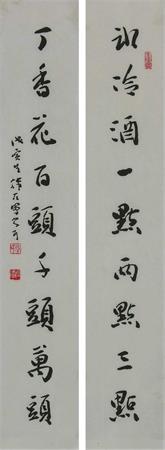 冰冷酒一點兩點三點
丁香花百頭千頭萬頭